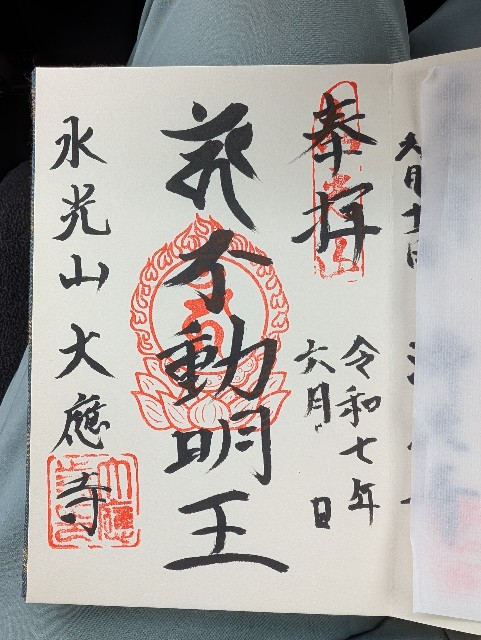 奉拝
令和七年
六月 日
不動明王
水光山大應寺